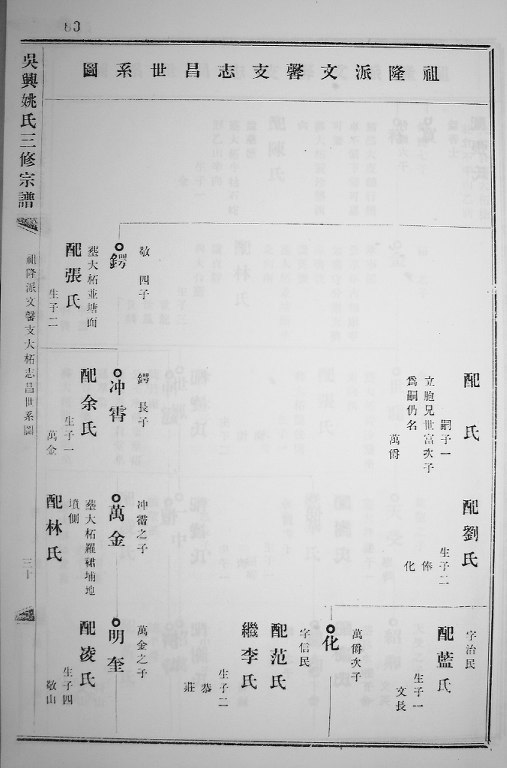 83
祖隆派文馨支志昌世系圖
配氏
嗣子一
立胞兄世富次子
爲嗣仍名
萬爵
配劉氏
生子二
俸
化
字治民
配藍氏
生子一
文長
萬爵次子
化
字信民
配范氏
繼李氏
生子二
恭
莊
敬四子
鍔
塟大柘並塘面
配張氏
生子二
鍔長子
冲霄
配余氏
生子一
萬金
冲霄之子
萬金
塟大柘羅裙埔地
墳側
配林氏
萬金之子
明奎
配凌氏
生子四
敬山
吳興姚氏三修宗譜
祖隆派文馨支大柘志昌世系圖
三十